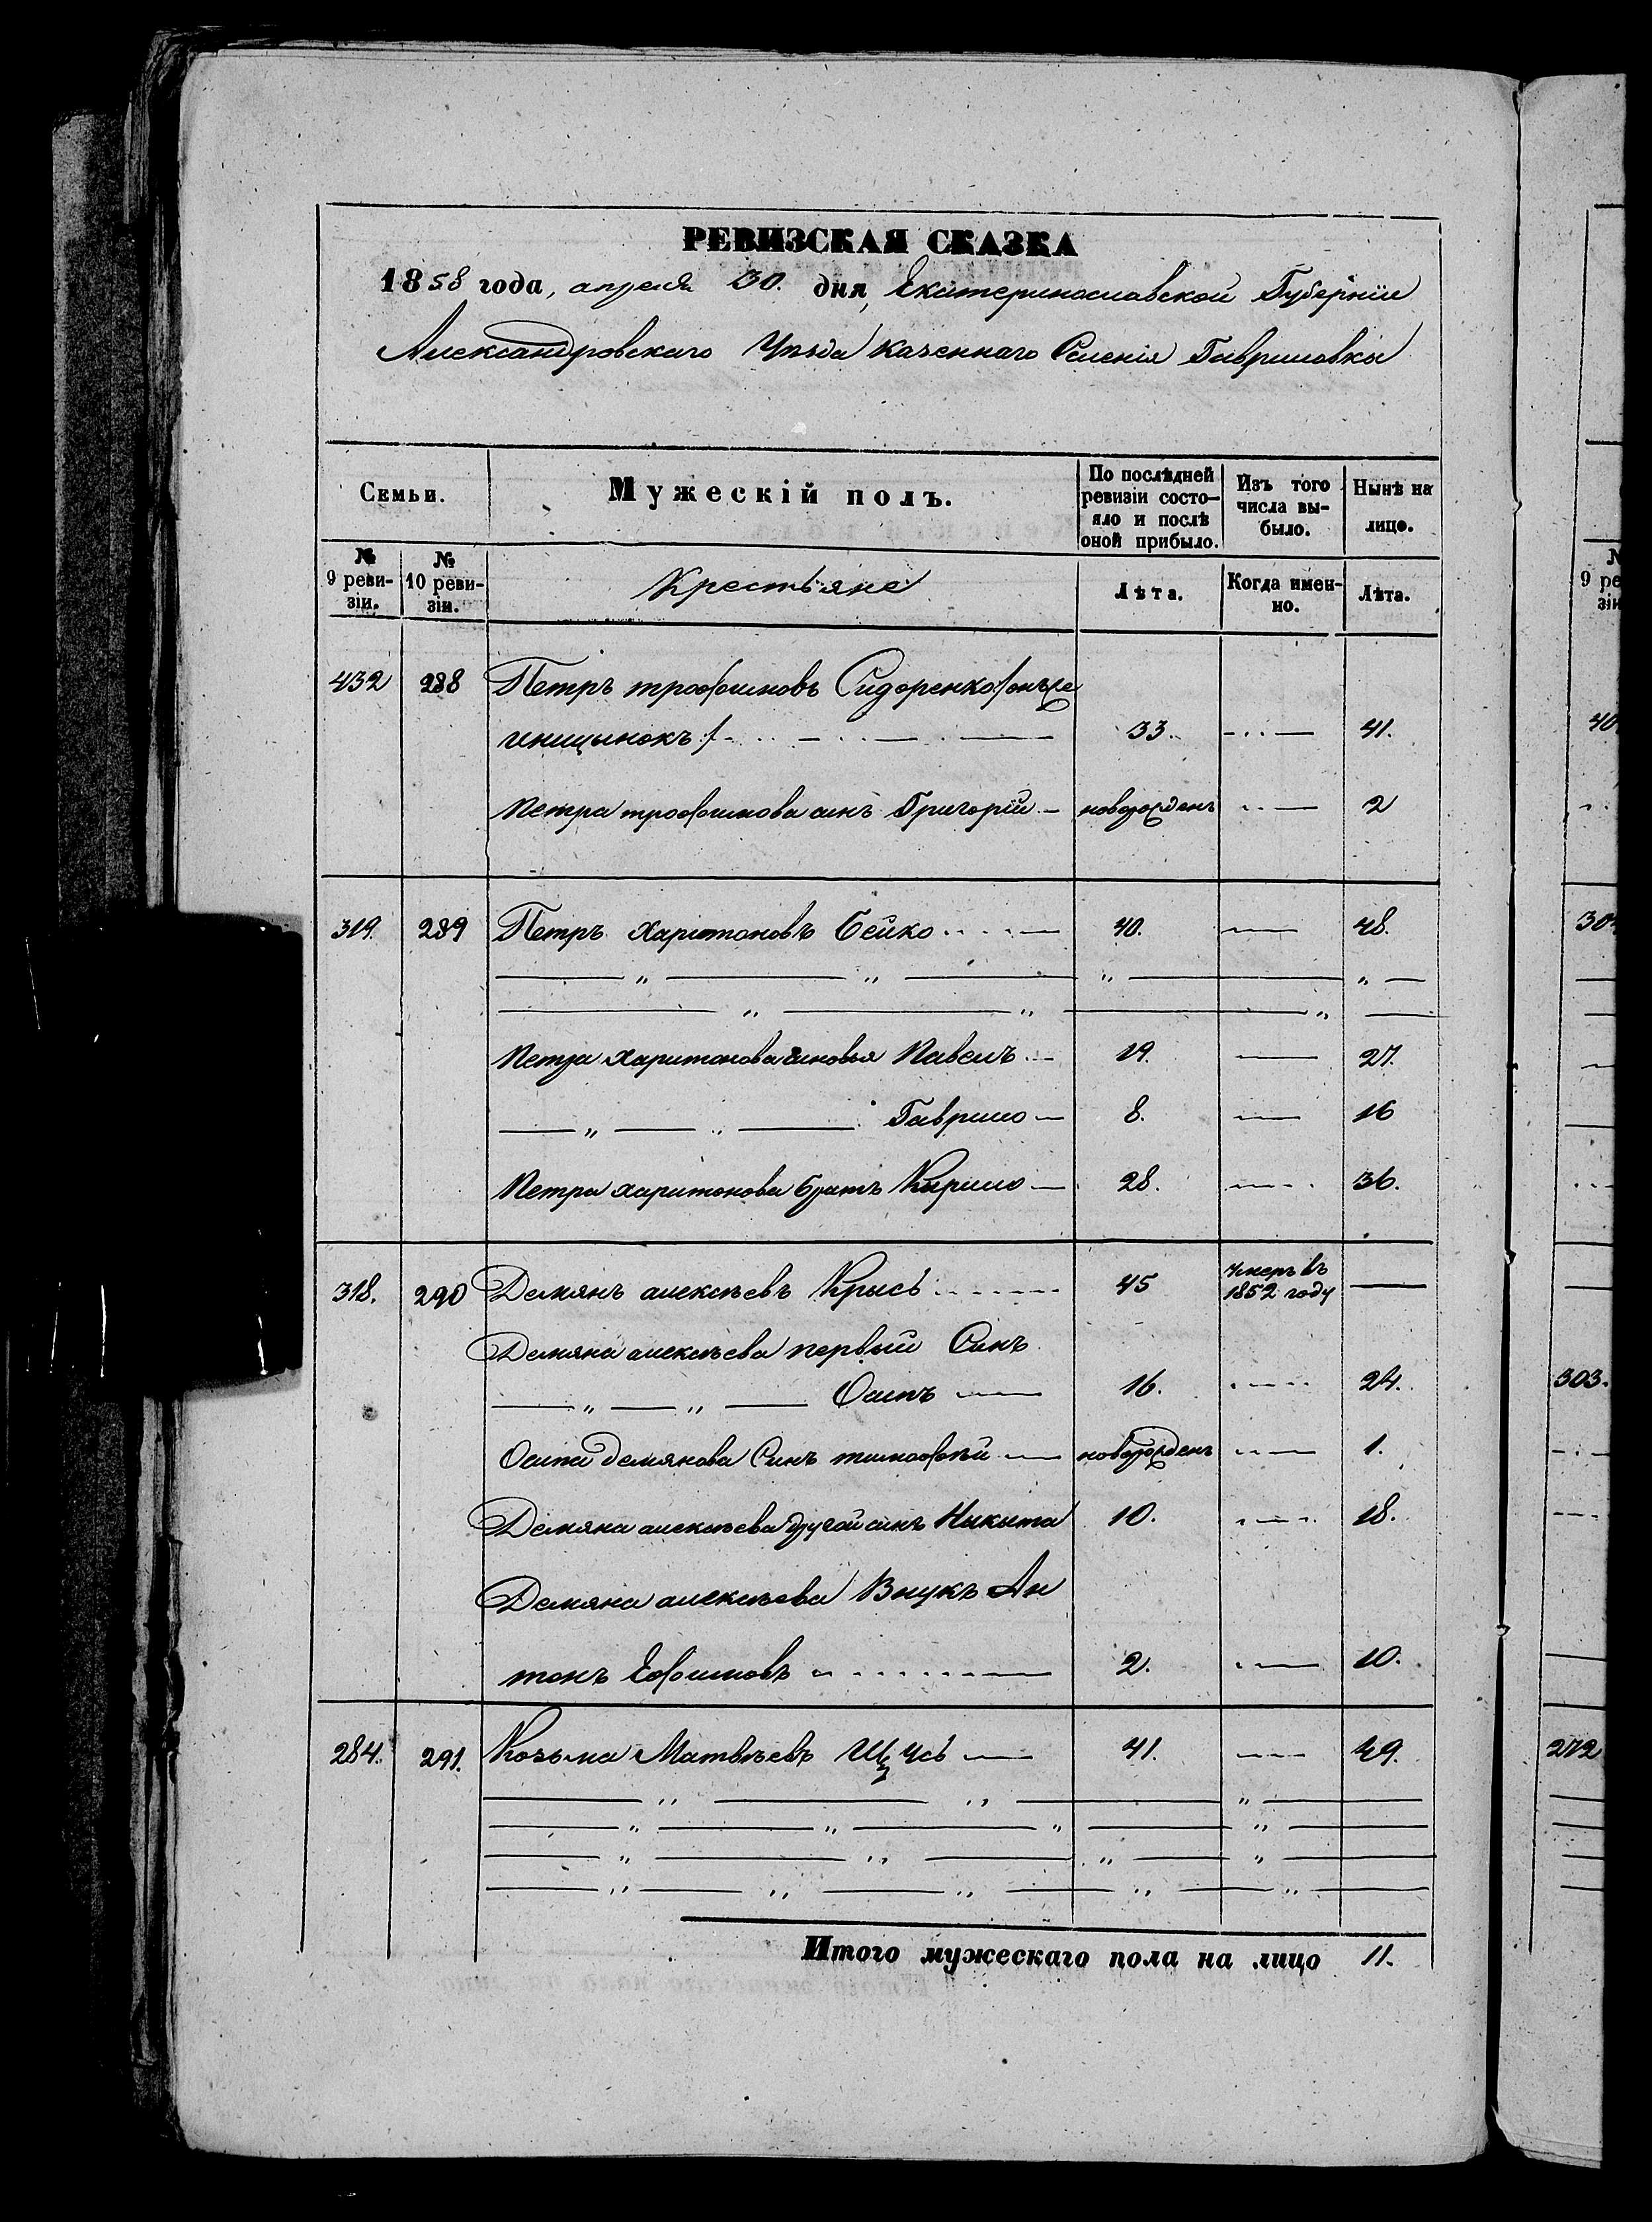 РЕВИЗСКАЯ СКАЗКА
1858 года, апреля 30. дня, Екатеринославской Губерніи
Александровскаго Уѣзда казеннаго Селенія Гавриловка
Семьи. Мужескій полъ. По послѣдней ревизіи состояло и послѣ оной прибыло. Изъ того числа выбыло. Нынѣ на лицо.
№ 9 ревизіи. № 10 ревизіи. Крестьяне Лѣта. Когда именно. Лѣта.
432 288 Петръ трофимовъ Сидоренко
33. 41.
Петра трофимова синъ Григорій новорожденъ 2
319. 289 Петръ Харитоновъ Бейко 40. 48.
Петра Харитонова синовья Павелъ 19. 27.
Гаврило 8. 16
Петра харитонова братъ Кирило 28. 36.
318. 290 Демянъ алексѣевъ Крысь 45 умеръ въ 1852 году
Демяна алексѣева первый Синъ
Осипъ 16. 24.
Осипа демянова Синъ тимофѣй новорожденъ 1.
Демяна алексѣева другой синъ Никита 10. 18.
Демяна алексѣева Внукъ Ан
тонъ Ефимовъ 2. 10.
284. 291. Козьма Матвѣевъ Щусь 41. 49.
Итого мужескаго пола на лицо 11.
№
9 ре
зіи
40
30
303.
272